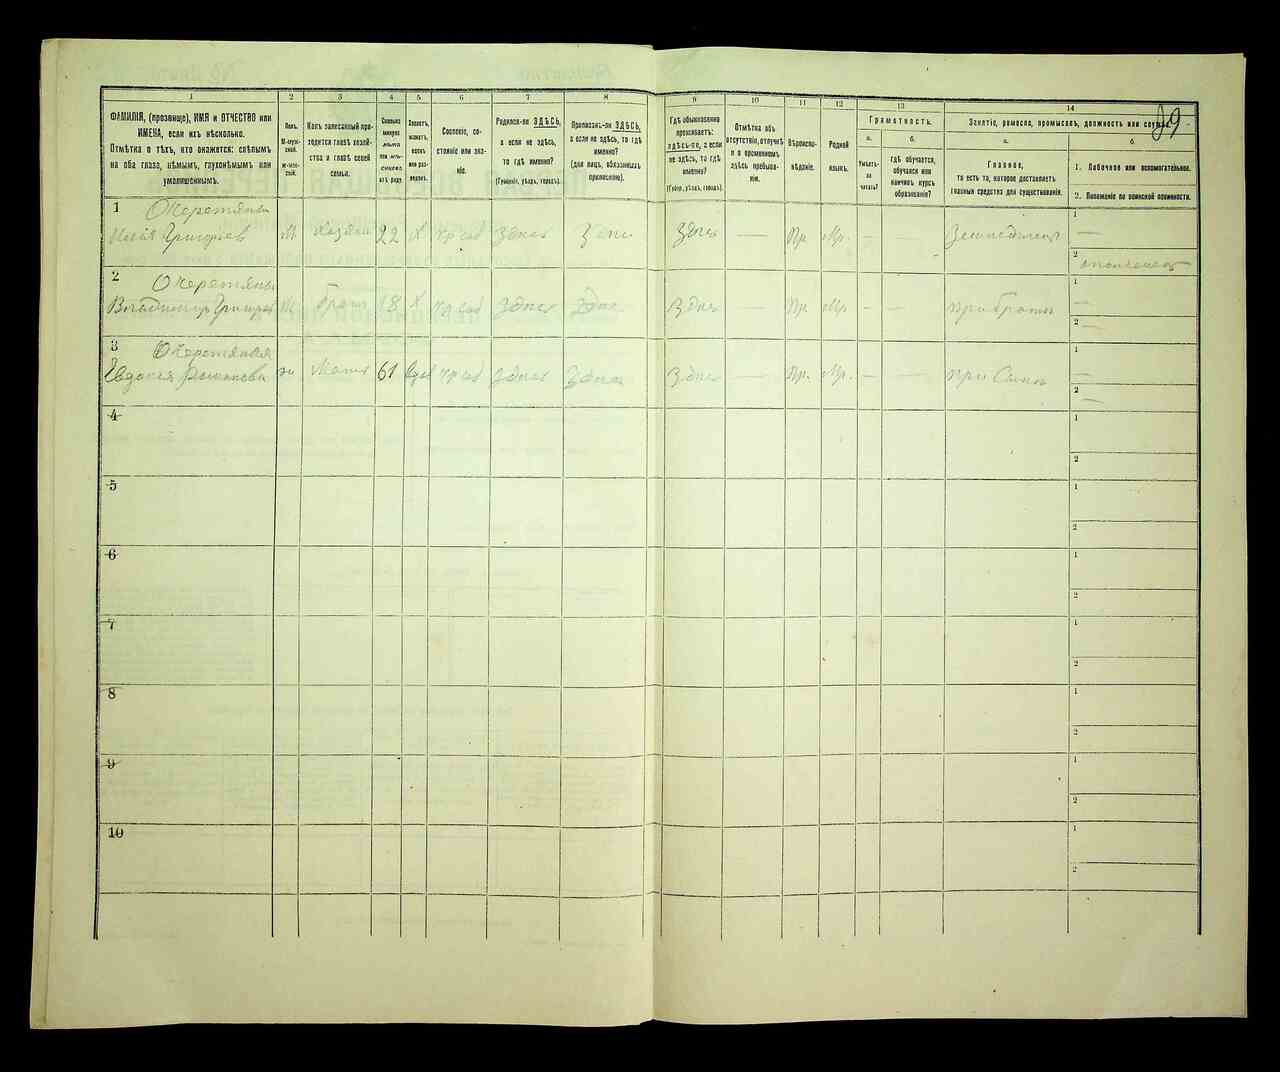 29
1 2 3 4 5 6 7 8 9 10 11 12 13 14
ФАМИЛІЯ, (прозвище), ИМЯ и ОТЧЕСТВО или
ИМЕНА, если ихъ нѣсколько.
Отмѣтка о тѣхъ, кто окажется: слѣпымъ
на оба глаза, нѣмымъ, глухонѣмымъ или
умалишеннымъ.
Полъ.
М-мужской.
Ж-женской.
Какъ записанный приходится главѣ хозяйства и главѣ своей
семьи.
Сколько
минуло
лѣтъ
или мѣсяцевъ
отъ роду.
Холостъ,
женатъ,
вдовъ
или разведенъ.
Сословіе, состояніе или званіе.
Родился-ли ЗДѢСЬ,
а если не здѣсь,
то гдѣ именно?
(Губернія, уѣздъ, городъ).
Приписанъ-ли ЗДѢСЬ,
а если не здѣсь, то гдѣ
именно?
(для лицъ, обязанныхъ
припискою).
Гдѣ обыкновенно
проживаетъ:
здѣсь-ли, а если
не здѣсь, то гдѣ
именно?
(Губер., уѣздъ, городъ).
Отмѣтка объ
отсутствіи, отлучкѣ
и о временномъ
здѣсь пребываніи.
Вѣроисповѣданіе.
Родной
языкъ.
Грамотность.
а.
Умѣетъ-ли
читать?
б.
гдѣ обучается,
обучался или
кончилъ курсъ
образованія?
Занятіе, ремесло, промыселъ, должность или служба.
а.
Главное,
то есть то, которое доставляетъ
главныя средства для существованія.
б.
1. Побочное или вспомогательное.
2. Положеніе по воинской повинности.
1
Григоріев М Хазяин 22 Х Здѣсь Здѣсь Здѣсь — Пр. Мр. — — 1 —
2
2
Владимир М Брат 18 Х Здѣсь Здѣсь Здѣсь — Пр. Мр. — — при брати 1 —
2 —
3 Очеретяная
Евдокія 61 Здѣсь Здѣсь Здѣсь — Пр. Мр. — — при 1 —
2 —
4 1
2
5 1
2
6 1
2
7 1
2
8 1
2
9 1
2
10 1
2